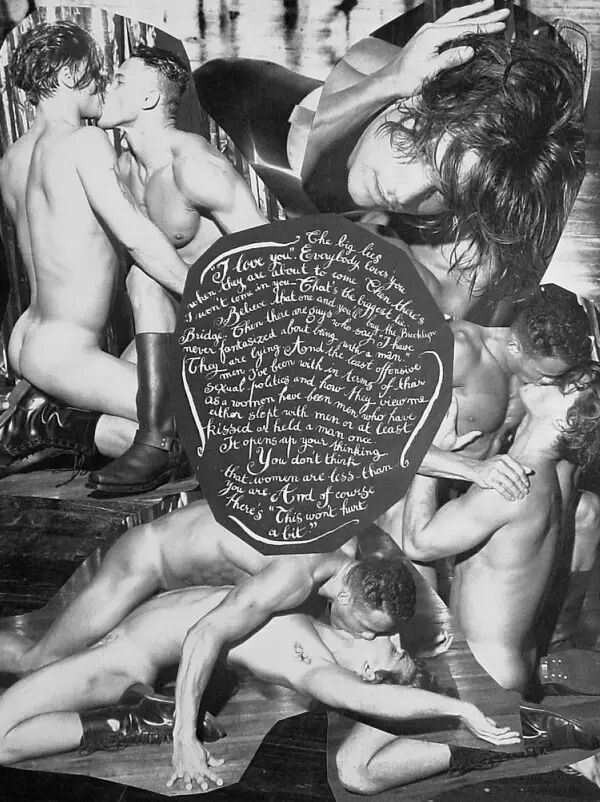 The big lies
"I love you". Everybody loves you
when they are about to come. Then there's
I won't come in you - That's the biggest lie.
Believe that one and you'll buy the Brooklyn
Bridge. Then there are guys who say, "I have
never fantasized about being with a man."
They are lying And the least offensive
men I've been with in terms of their
sexual politics and how they view me
as a women have been men who have
either slept with men or at least
kissed or held a man once.
It opens up your thinking
You don't think
that women are less than
you are And of course
there's "This won't hurt
a bit."